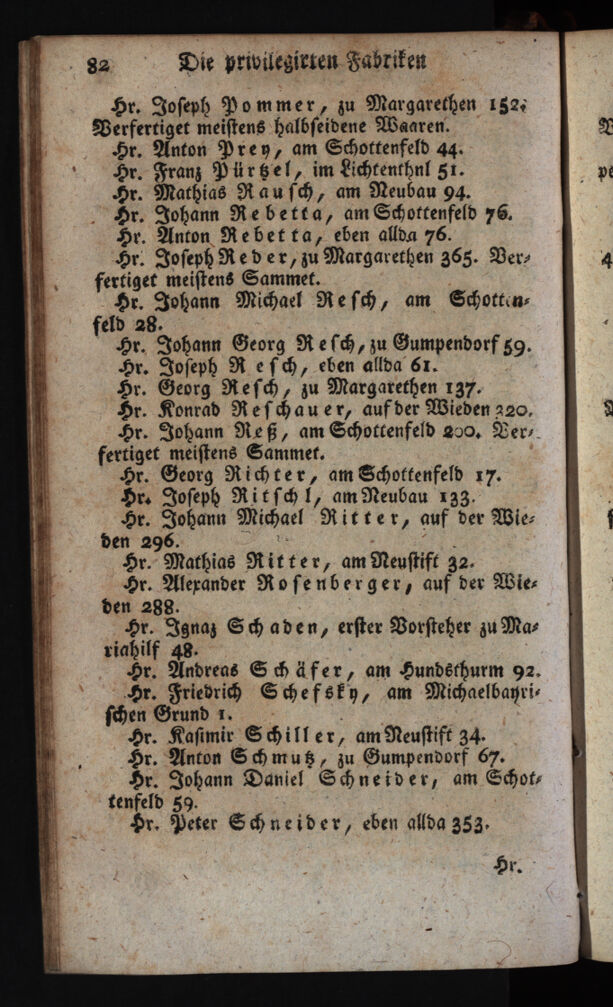 82 Die privilegirten Fabriken
Hr. Joseph Pommer, zu Margarethen 152.
Verfertiget meistens halbseidene Waaren.
Hr. Anton Prey, am Schottenfeld 44.
Hr. Franz Pürtzel, im Lichtenthnl 51.
Hr. Mathias Rausch, am Neubau 94.
Hr. Johann Rebetta, am Schottenfeld 76.
Hr. Anton Rebetta, eben allda 76.
Hr. Joseph Reder, zu Margarethen 365. Ver-
fertiget meistens Sammet.
Hr. Johann Michael Resch, am Schotten-
feld 28.
Hr. Johann Georg Resch, zu Gumpendorf 59.
Hr. Joseph Resch, eben allda 61.
Hr. Georg Resch, zu Margarethen 137.
Hr. Konrad Reschauer, auf der Wieden 220.
Hr. Johann Reß, am Schottenfeld 200. Ver-
fertiget meistens Sammet.
Hr. Georg Richter, am Schottenfeld 17.
Hr. Joseph Ritschl, am Neubau 133.
Hr. Johann Michael Ritter, auf der Wie-
den 296.
Hr. Mathias Ritter, am Neustift 32.
Hr. Alexander Rosenberger, auf der Wie-
den 288.
Hr. Ignaz Schaden, erster Vorsteher zu Ma-
riahilf 48.
Hr. Andreas Schäfer, am Hundsthurm 92.
Hr. Friedrich Schefsky, am Michaelbayri-
schen Grund 1.
Hr. Kasimir Schiller, am Neustift 34.
Hr. Anton Schmutz, zu Gumpendorf 67.
Hr. Johann Daniel Schneider, am Schot-
tenfeld 59.
Hr. Peter Schneider, eben allda 353.
Hr.